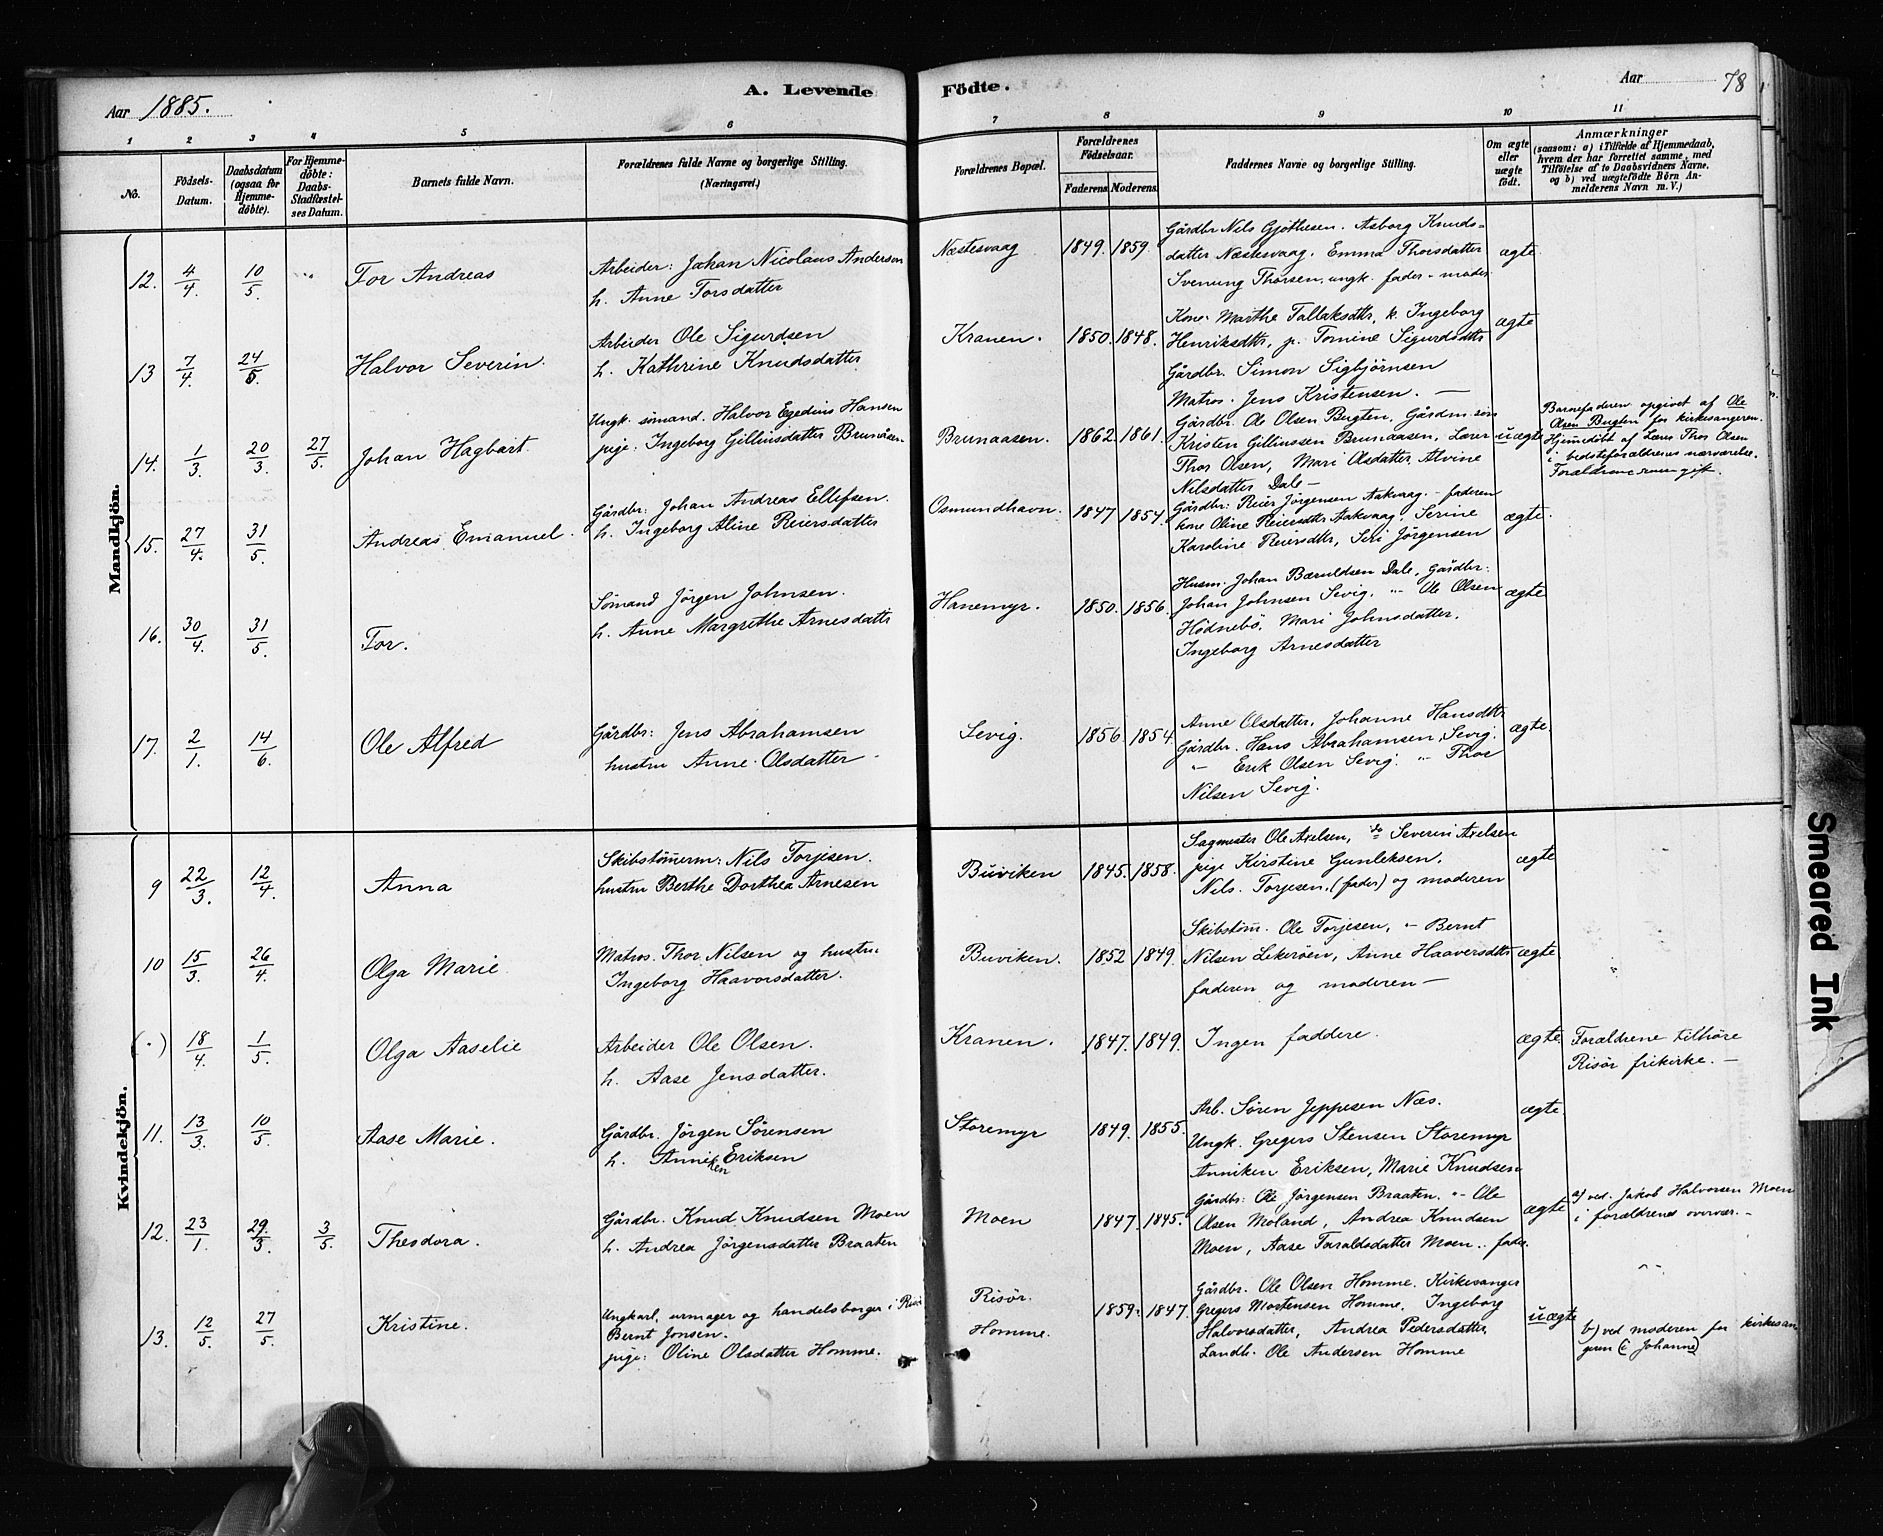 Aar 1885.
A. Levende
Födte.
Aar
78
1 2 3 4 5 6 7 8 9 10 11
No.
Födsels-Datum.
Daabsdatum (ogsaa for Hjemmedöbte).
For Hjemmedöbte: Daabs-Stadfæstelses Datum.
Barnets fulde Navn.
Forældrenes fulde Navne og borgerlige Stilling.
(Næringsvei.)
Forældrenes Bopæl.
Forældrenes Födselsaar.
Faderens. Moderens.
Faddernes Navne og borgerlige Stilling.
Om ægte eller uægte födt.
Anmærkninger
(saasom: a) i Tilfælde af Hjemmedaab, hvem der har forrettet samme, med Tilföielse af to Daabsvidners Navne, og b) ved uægtefödte Börn Anmelderens Navn m. V.)
Mandkjön.
12. 4/4. 10/5. Tor Andreas
Arbeider: Johan Nicolaus Anderson
h. Anne Torsdatter
Næstesvaag 1849. 1859.
Gårdbr Nils Gjöthesen. Asborg Knuds-
datter Næstesvaag. Emma Thorsdatter
Svenung Thorsen, ungk. fader - moder
ægte.
13 7/4. 24/5. Halvor Severin.
Arbeider Ole Sigurdsen
h. Kathrine Knudsdatter
Kranen. 1850. 1848.
Kone. Marthe Tallaksdtr, k. Ingeborg
Henriksdtr, p. Tomine Sigurdsdtr
Gårdbr. Simon Sigbjörnsen
Matros. Jens Kristensen. —
ægte
14. 1/3. 20/3. 27/5. Johan Hagbart.
Ungk. sömand. Halvor Egedius Hansen
pige: Ingeborg Gillinsdatter Brunåsen
Brunaasen. 1862. 1861.
Gårdbr. Ole Olsen Bugten, Gårdm. sön
Kristen Gillinssen Brunaasen, Lærer
Thor Olsen, Mari Olsdatter. Alvine
Nilsdatter Dale -
uægte
Barnefaderen opgivet af Ole
Olsen Bugten for kirkesangeren.
Hjemdöbt af Lærer Thor Olsen
i bedsteforældrenes nærværelse.
15. 27/4. 31/5. Andreas Emanuel.
Gårdbr: Johan Andreas Ellefsen.
h. Ingeborg Aline Reiersdatter
Osmundhavn. 1847 1854.
Gårdbr: Reier Jörgensen Aakvaag. - faderen
kone Oline Reiersdtr Aakvaag, Serine
Karoline Reiersdtr, Siri Jörgensen
ægte.
16. 30/4. 31/5. Tor.
Sömand Jörgen Johnsen.
h. Anne Margrethe Arnesdatter
Hanemyr. 1850. 1856.
Husm. Johan Bæruldsen Dale, gårdbr:
Johan Johnsen Sevig. "- Ole Olsen
Hödnebö, Mari Johnsdatter,
Ingeborg Arnesdatter
ægte
17. 2/1. 14/6. Ole Alfred
Gårdbr: Jens Abrahamsen
hustru Anne Olsdatter
Sevig. 1856. 1854.
Anne Olsdatter, Johanne Hansdtr
Gårdbr. Hans Abrahamsen, Sevig.
"- Erik Olsen Sevig. "- Thor
Nilsen Sevig.
ægte.
Kvindekjön.
9 22/3. 12/4. Anna
Skibstömerm: Nils Torjesen.
hustru Berthe Dorthea Arnesen
Buviken 1845. 1858.
Sagmester Ole Axelsen, do Severin Axelsen
pige Kirstine Gunleksen.
Nils. Torjesen. (fader) og moderen
ægte
10 15/3. 26/4. Olga Marie
Matros. Thor Nilsen og hustru
Ingeborg Haavorsdatter.
Buviken. 1852 1849.
Skibstöm. Ole Torjesen, - Bernt
Nilsen Lekeröen, Anne Haaversdtr
faderen og moderen —
ægte.
(·) 18/4. 1/5. Olga Aaselie
Arbeider Ole Olsen.
h. Aase Jensdatter.
Kranen. 1847. 1849.
Ingen faddere.
ægte.
Forældrene tilhöre
Risör frikirke. —
11. 13/3. 10/5. Aase Marie.
Gårdbr. Jörgen Sörensen
h. Anniken Eriksen
Storemyr 1849. 1855.
Arb. Sören Jeppesen Næs.
Ungk. Gregers Stensen Storemyr
Anniken Eriksen, Marie Knudsen
ægte.
12. 23/1. 29/3. 3/5. Theodora.
Gårdbr. Knud Knudsen Moen
h. Andrea Jörgensdatter Braaten
Moen 1847. 1845.
Gårdbr: Ole Jörgensen Braaten. "- Ole
Olsen Moland, Andrea Knudsen
Moen, Aase Taraldsdatter Moen.. fader
ægte
a) ved. Jakob Halvorsen Moen
i forældrenes overvær. -
13. 12/5. 27/5. Kristine.
Ungkarl, urmager og handelsborger i Risör
Bernt Jonsen.
pige: Oline Olsdatter Homme.
Risör.
Homme.
1859. 1847
Gårdbr. Ole Olsen Homme. Kirkesanger
Gregers Mortensen Homme. Ingeborg
Halvorsdatter, Andrea Pedersdatter,
Landh. Ole Andersen Homme
uægte
b) ved moderen for kirkesan
geren (i Johanne)
Smeared Ink